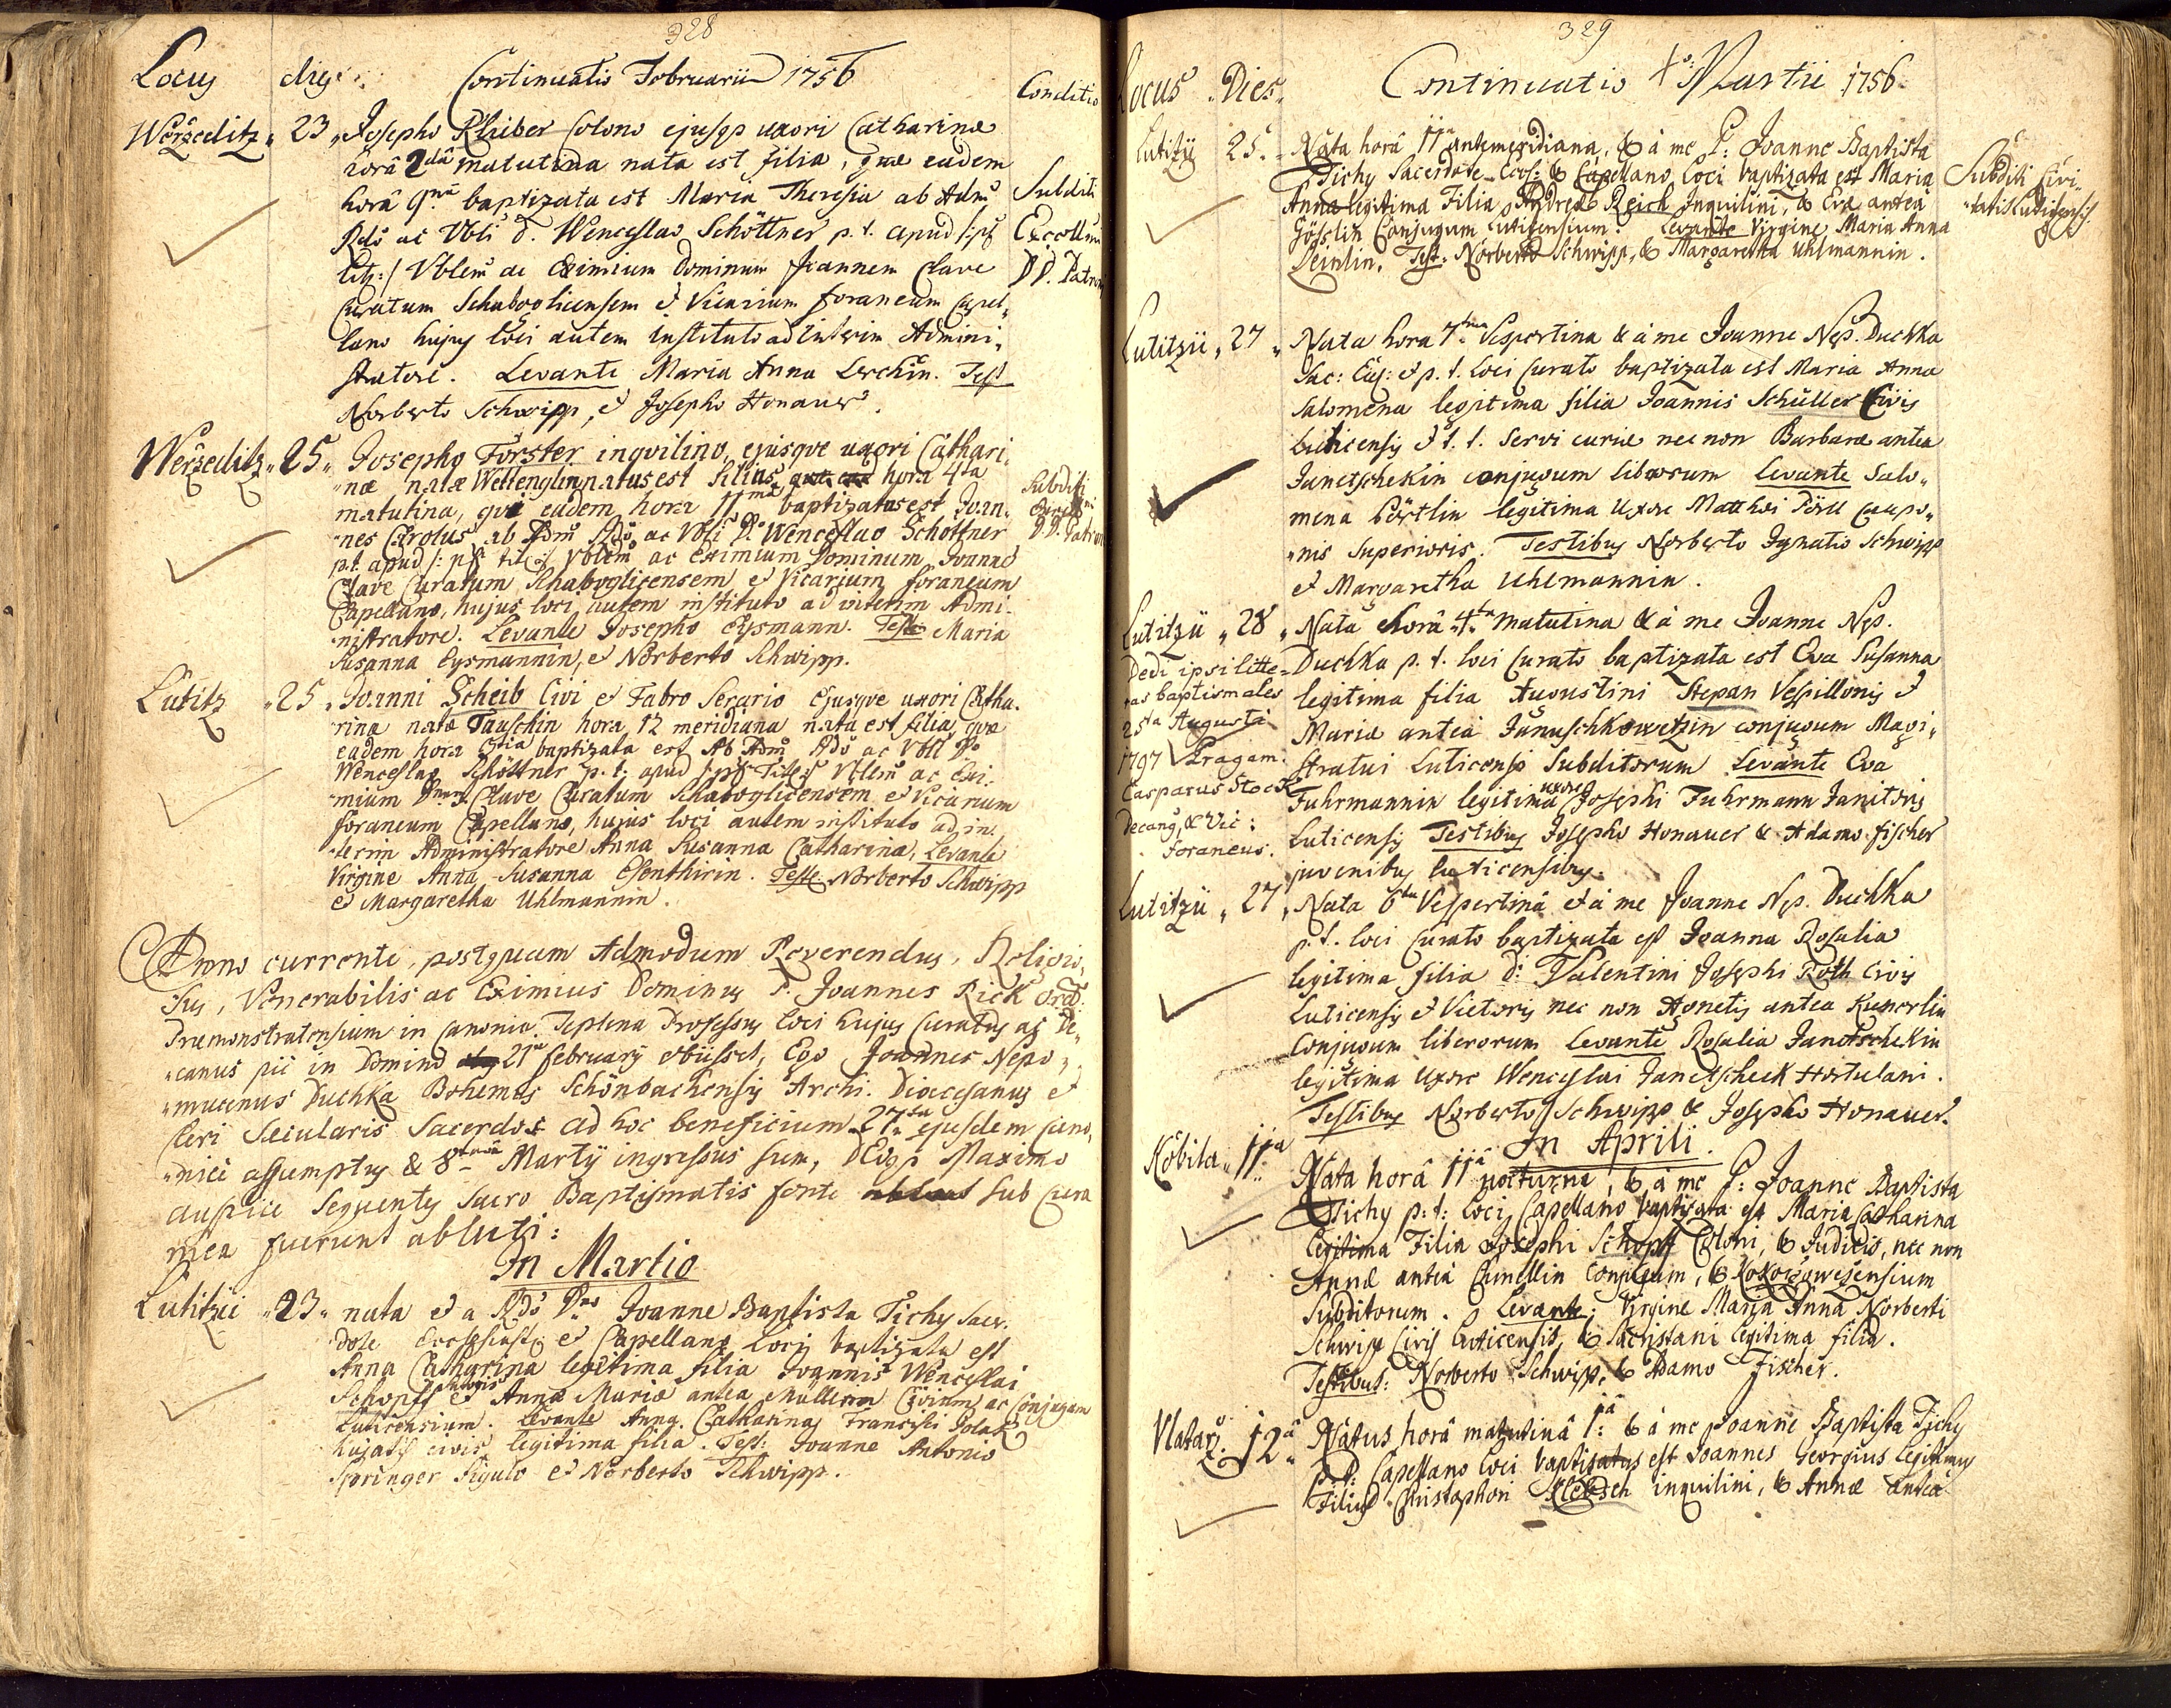 328
Locus dies Continuatio Februarii 1756 Conditio
Werscditz 23 Josepho Kleiber Colono ejusqs uxori Catharinæ
horâ 2dâ matutina nata est filia, quæ eadem
horâ 9nâ baptizata est Maria Theresia ab Adm: Subditi
Rdô ac Vbli d. Wenceslao Schöttner p. t. apud /:ps Excellmi
tit:/ Vblem ac Eximium Dominum Joannem Clave DD. Patroni
Curatum Schaboglicensem et Vicarium foraneum Capel„
lano hujus loci autem instituto ad interim Admini„
stratore. Levante Maria Anna Lerchin. Test
Norberto Schwipp, et Josepho Honauer.
Werscditz 25 Josepho Forster inqvilino, ejusqve uxori Cathari„
„næ natæ Wettenglin natus est filius hora 4ta
matutina, qvi eadem hora 11ma baptizatus est Joan„ Subditi
„nes Carolus ab Adm Rdô, ac Vbli D. Wenceslao Schöttner D.D. Patroni
p.t. apud /: ps tit:/ Vblem ac Eximium Dominum Joanne
Clave Curatum Schaboglicensem et Vicarium foraneum
Capellano, hujus loci autem instituto ad interim Admi„
„nistratore. Levante Josepho Eysmann. Teste Maria
Susanna Eysmannin, et Norberto Schwipp.
Lutitz 25 Joanni Scheib Civi et Fabro Serario Ejusqve uxori Catha„
„rina natæ Tauschin hora 12 meridiana nata est filia, qvæ
eadem hora 3tia baptizata est Ab Adm Rdô ac Vbli D.
Wenceslao Schöttner p. t. apud /:ps Tit:/ Vblem ac Exi„
„mium Dnum Clave Curatum Schaboglicensem et Vicarium
foraneum Capellano, hujus loci autem instituto ad in„
„terim Administratore Anna Susanna Catharina, Levante
Virgine Anna Susanna Esenthirin. Teste Norberto Schwipp
et Margaretha Uhlmannin.
Anno currente, postquam Admodum Reverendus, Religio„
sus, Venerabilis ac Eximius Dominus P. Joannes Rick Ord:
Præmonstratensium in Canonia Teplena Professus loci hujus Curatus ac De„
„canus pie in Domino 21ma february obiisset, Ego Joannes Nepo„
„mucenus Duchka Bohemus Schönbachensis Archi. Dioecesanus et
Cleri Sæcularis Sacerdos ad hoc beneficium 27ma ejusdem Cano„
„nice assumptus & 8tavâ Martij ingressus sum, DEOqs Maximo
auspice Sequentes Sacro Baptismatis fonte sub Cura
mea fuerunt abluti:
In Martio
Lutitzii 23 nata et a Rdô Dno Joanne Baptista Tichy Sacer„
dote Ecclesiast: et Capellano Loci baptizata est
Anna Catharina legitima filia Joannis Wenceslai
Schopff et Annæ Mariæ antea Müllerin Civium ac Conjugum
Luticensium. Levante Anna Catharina Francisci Polak
hujatis civis legitima filia. Test: Joanne Antonio
Springer Figulo et Norberto Schwipp.
329
Locus Dies Continuatio Martii 1756
Lutitzij 25. Nata horâ 11ma antemeridiana, & à me P: Joanne Baptista
Tichy Sacerdote Eccl: & Capellano loci baptizata est Maria Subditi Civi„
Anna legitima Filia Andreæ Reich Inquilini, & Evæ antea „tatis Luticensis
Gösslin Conjugum Luticensium. Levante Virgine Maria Anna
Leinlin. Test: Norberto Schwipp, & Margaretha Uhlmannin.
Lutitzii 27 Nata hora 7tma Vespertina & à me Joanne Nep. Duchka
Sac: Eccl: et p. t. loci Curato baptizata est Maria Anna
Salomena legitima filia Joannis Schüller Civis
Luticensis et t. t. Servi curiæ nec non Barbaræ antea
Janetschekin conjugum liberorum Levante Salo„
mena Pörtlin legitima Uxore Matthæi Pörtl Caupo„
„nis Superioris. Testibus Norberto Ignatio Schwipp
et Margaretha Uhlmannin.
Lutitzii 28 Nata horâ 4ta matutina & à me Joanne Nep.
Dedi ipsi litte= Duchka p. t. loci Curato baptizata est Eva Susanna
ras baptismales legitima filia Augustini Stepan Vespillonis et
25ta Augusti Mariæ antea Januschkowetzin conjugum Magi„
1797 Pragam. stratui Luticensi Subditorum Levante Eva
Casparus Stock Fuhrmannin legitima uxore Josephi Fuhrmann Janitoris
Decanus, & Vic: Luticensis Testibus Josepho Honauer & Adamo Fischer
Foraneus. juvenibus Luticensibus.
Lutitzii 27 Nata 6ta Vespertinâ et à me Joanne Nep. Duchka
p. t. loci Curato baptizata est Joanna Rosalia
legitima filia d: Valentini Josephi Roth Civis
Luticensis et Vietoris nec non Agnetis antea Kunerlin
Conjugum liberorum Levante Rosalia Janetschekin
legitima Uxore Wenceslai Janetscheck Hortulani.
Testibus Norberto Schwipp & Josepho Honauer.
In Aprili.
Kobila 11a Nata horâ 11â nocturna, & à me P: Joanne Baptista
Tichy p: t: loci Capellano baptizata est Maria Catharina
legitima Filia Josephi Schopff Coloni, & Judicis, nec non
Annæ antea Conjugum, & Kokorzowizensium
Subditorum. Levante: Virgine Maria Anna Norberti
Schwipp Civis Luticensis, & Sacristani legitima filia.
Testibus: Norberto Schwip, & Adamo Fischer.
Vlatarz. 12a Natus horâ matutinâ 1â & à me Joanne Baptista Tichy
p: t: Capellano loci baptisatus est Joannes Georgius legitimus
Filius Christophori Klobsch inquilini, & Annæ antea